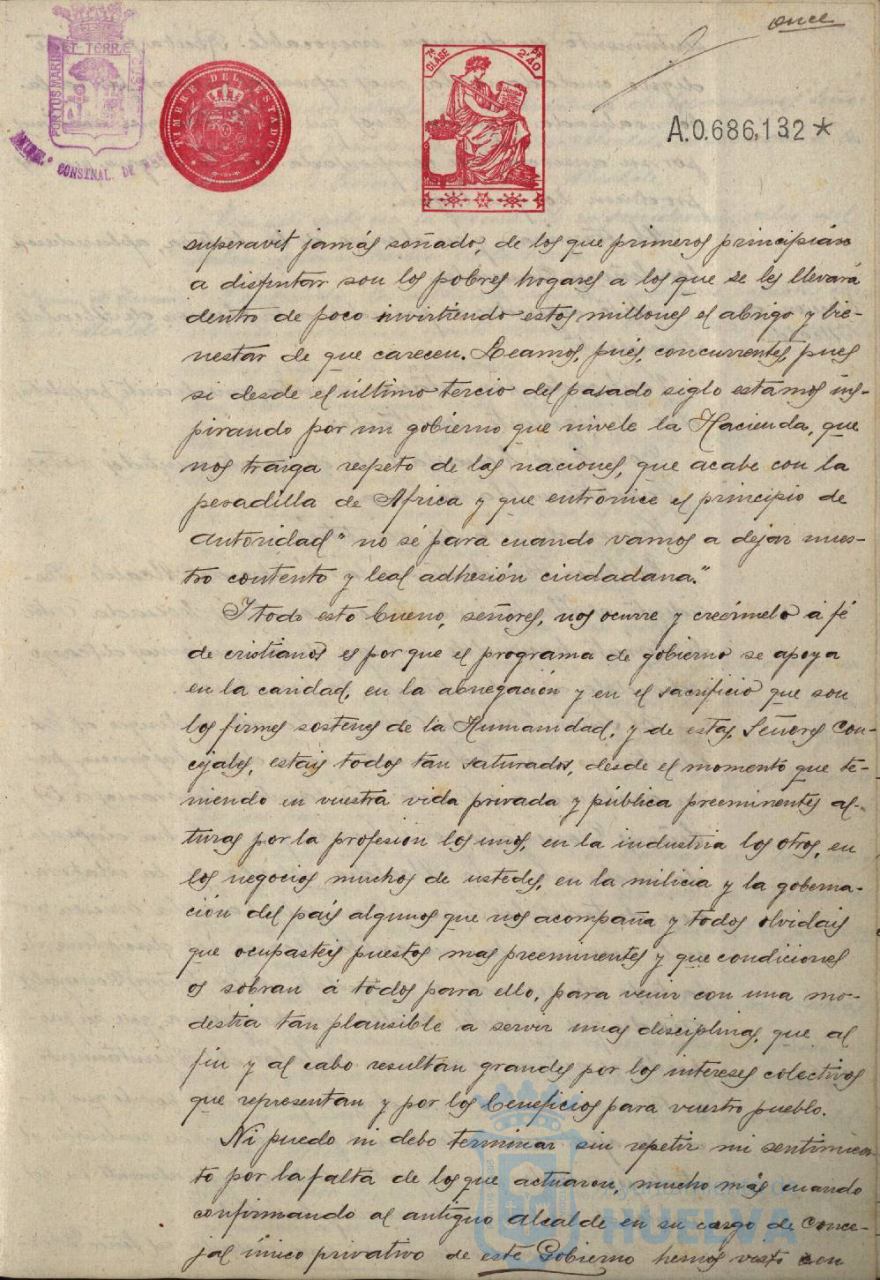 once
PORTUS MARIS ET TERRE CUSTODIO
TIMBRE DEL ESTADO
7ª CLASE
PS 2'40
A.0.686,132*
superavit jamás soñado, de los que primeros principián
a disfrutar son los pobres hogares a los que se les llevará
dentro de poco invirtiendo estos millones el abrigo y bie-
nestar de que carecen. Seamos, pués, concurrentes, pues
si desde el último tercio del pasado siglo estamos ins-
pirando por un gobierno que nivele la Hacienda, que
nos traiga respeto de las naciones, que acabe con la
pesadilla de Africa y que entronice el principio de
autoridad" no sé para cuando vamos a dejar nues-
tro contento y leal adhesión ciudadana."
Y todo esto bueno, señores, nos ocurre y creérmelo a fé
de cristianos es por que el programa de gobierno se apoya
en la caridad, en la abnegación y en el sacrificio que son
los firmes sostenes de la Humanidad, y de estas, Señores Con-
cejales, estais todos tan saturados, desde el momento que te-
niendo en vuestra vida privada y pública preeminentes al-
turas por la profesion los unos, en la industria los otros, en
los negocios muchos de ustedes, en la milicia y la goberna-
ción del país algunos que nos acompaña y todos olvidais
que ocupasteis puestos mas preeminentes y que condiciones
os sobran á todos para ello, para venir con una mo-
destia tan plausible a servir unas disciplinas, que al
fin y al cabo resultan grandes por los intereses colectivos
que representan y por los beneficios para vuestro pueblo.
Ni puedo ni debo terminar sin repetir mi sentimien-
to por la falta de los que actuaron, mucho más cuando
confirmando al antiguo alcalde en su cargo de Conce-
jal único privativo de este Gobierno hemos visto con
HUELVA